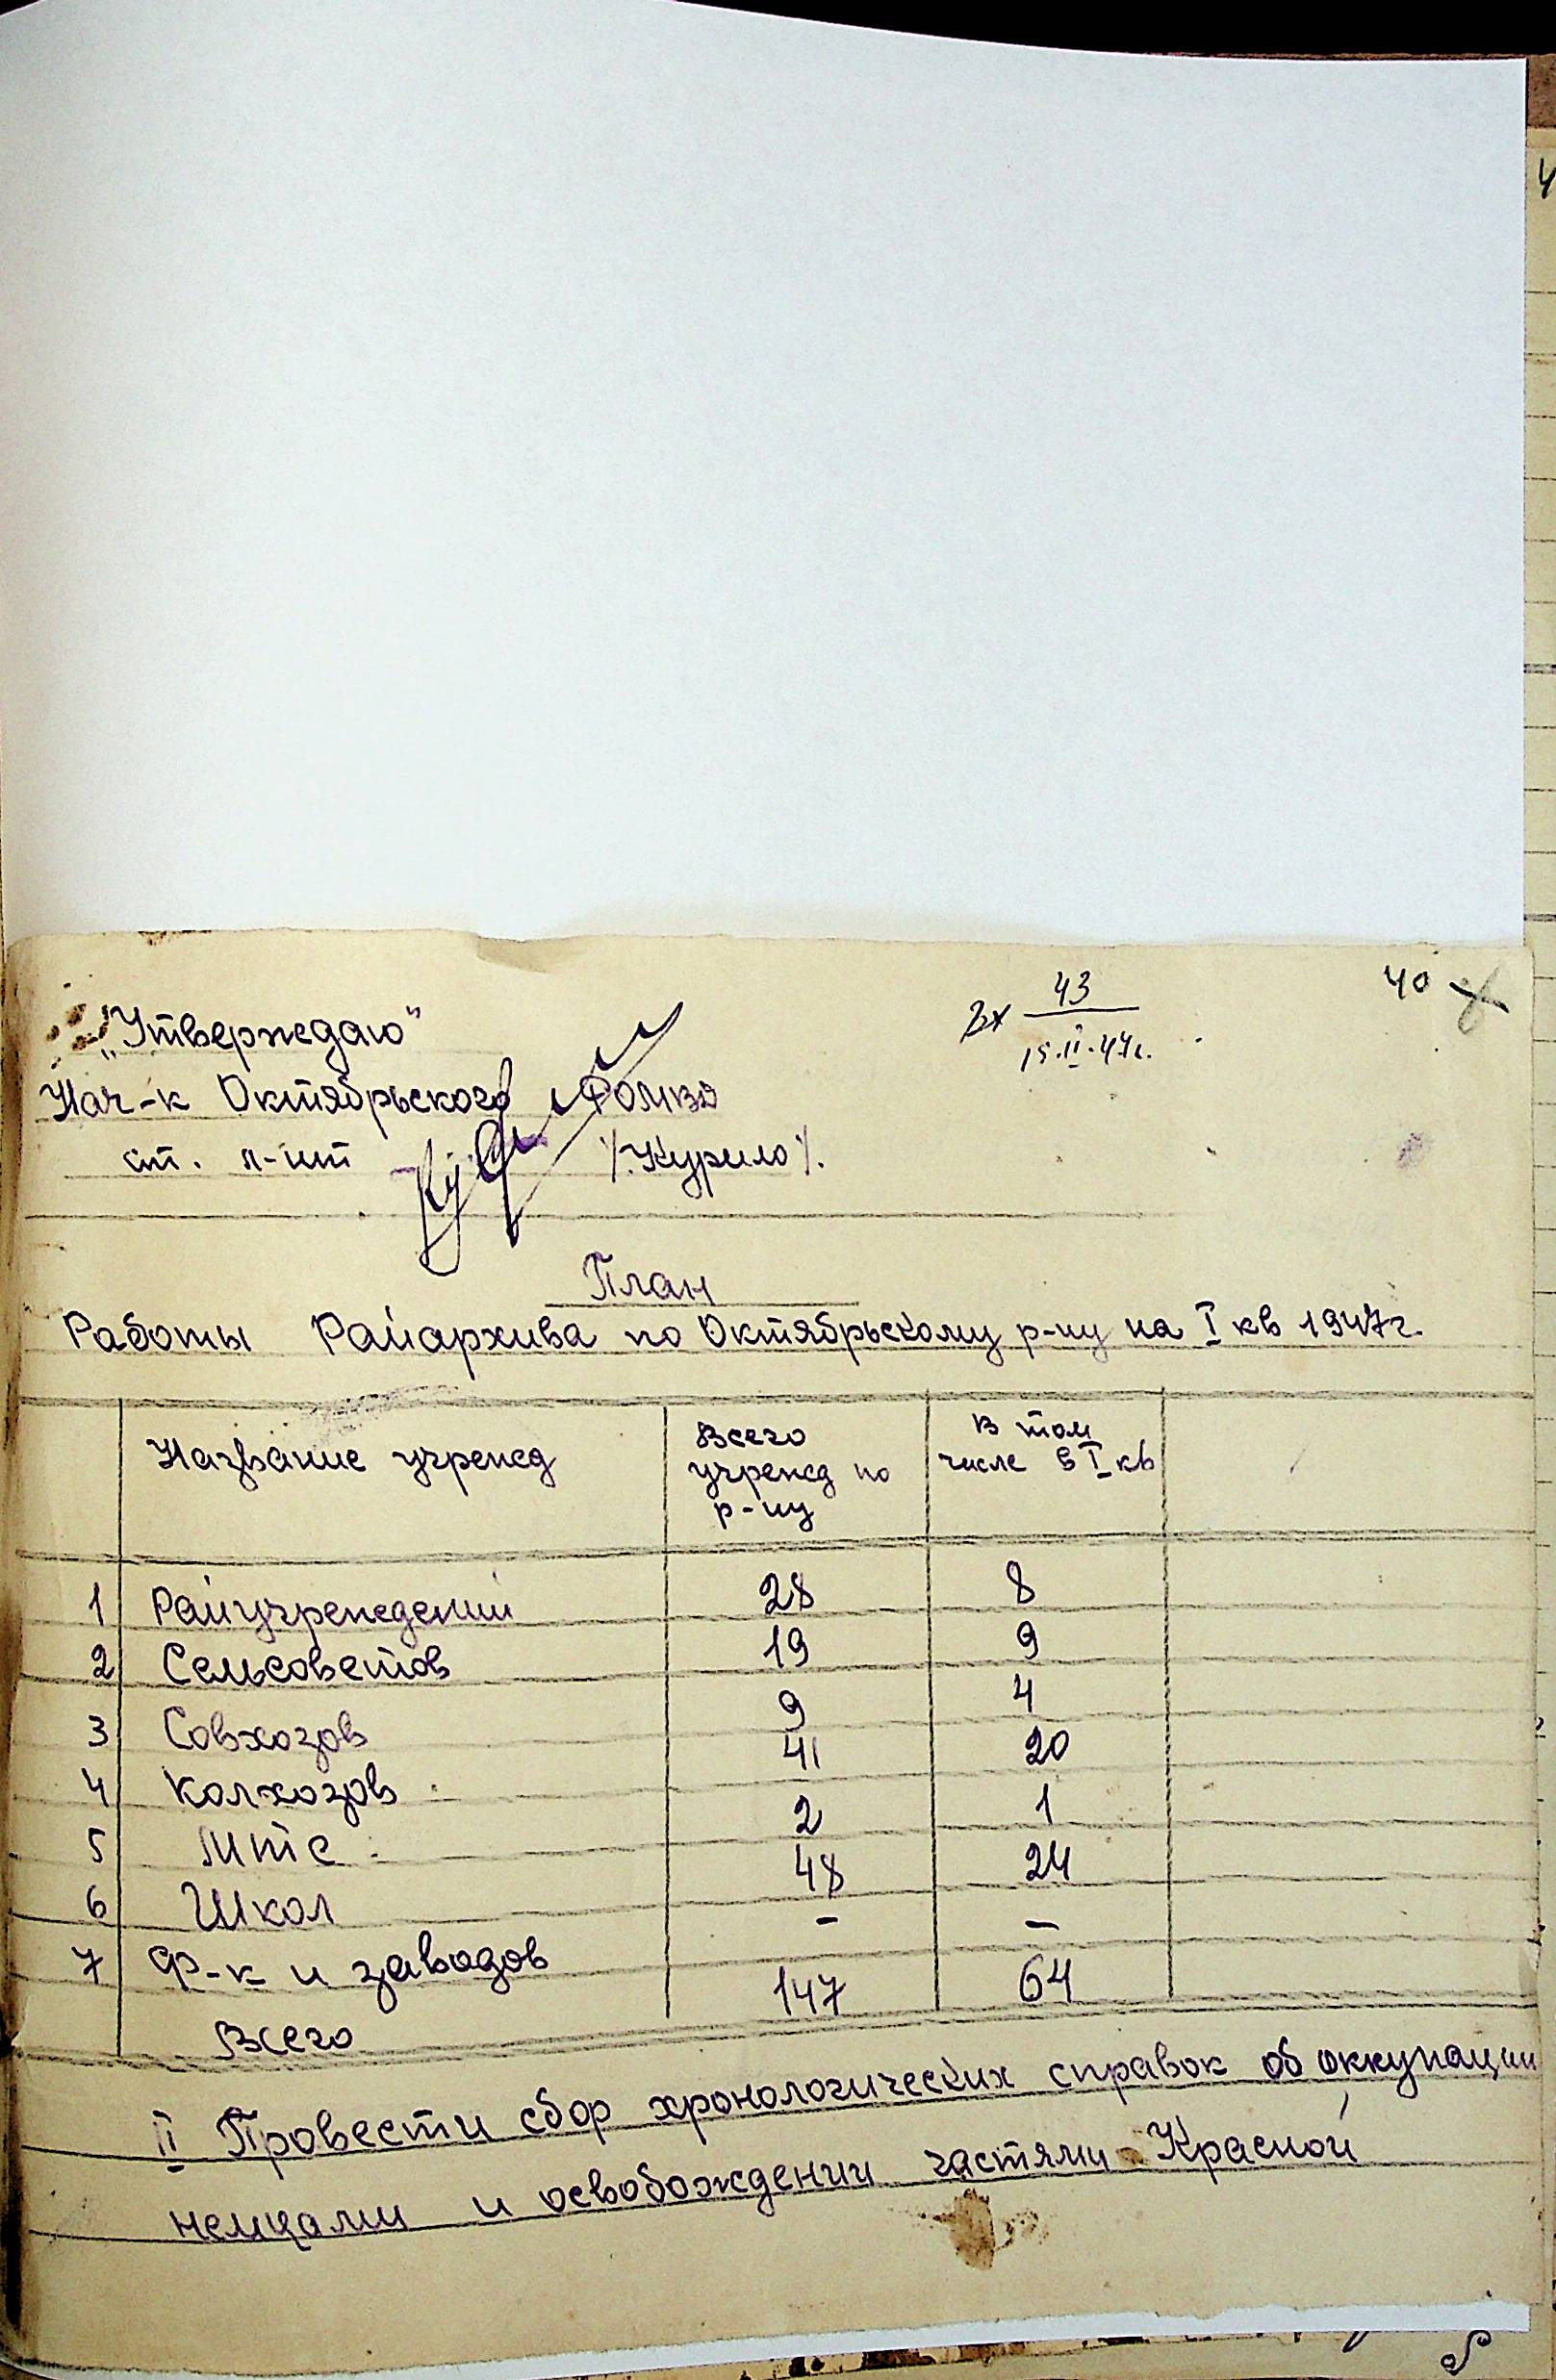 Вх 43
15.II.47г.
40
„Утверждаю"
Нач-к Октябрьского РОМВД
ст. л-нт /Курило/.
План
Работы Райархива по Октябрьскому р-ну на I кв 1947г.
Название учрежд
Всего учрежд по р-ну
В том числе в I кв
1 Райучреждений 28 8
2 Сельсоветов 19 9
3 Совхозов 9 4
4 Колхозов 41 20
5 МТС 2 1
6 Школ 48 24
7 Ф-к и заводов - -
Всего 147 64
II Провести сбор хронологических справок об оккупации
немцами и освобождении частями Красной